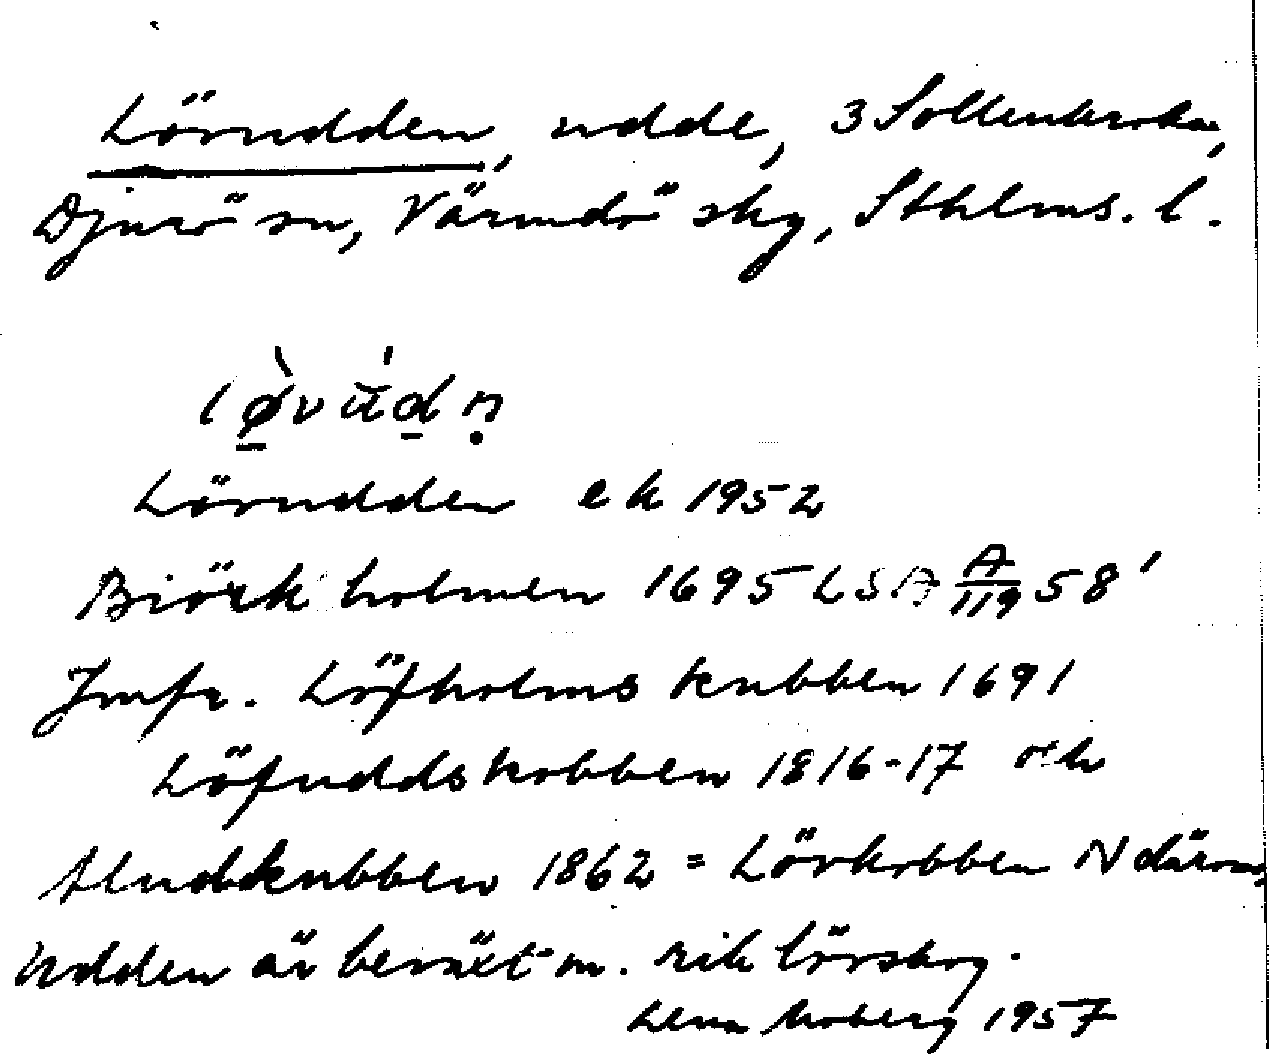 Lövudden, udde, 3 Sollenkroka,
Djurö sn, Värmdö skg, Sthlms. l.
løvùdn̥
Lövudden ek 1952
Biörkholmen 1695 LSA A/119 58'
Jmfr. Löfholms kubben 1691
Löfuddskobben 1816-17 och
kubben 1862 = Lövkobben N därom,
Udden är beväxt m. rik lövskog.
Lena Moberg 1957